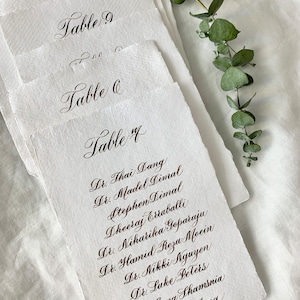 Table 9
Table 6
Table
Dr. Thai Dang
Dr. Madel Dimal
Stephen Dimal
Dheeraj Erraballi
Dr. Niharika Goparaju
Dr. Hamid Reza Moein
Dr. Nikki Nguyen
Dr. Lake Peters
Shamsnia